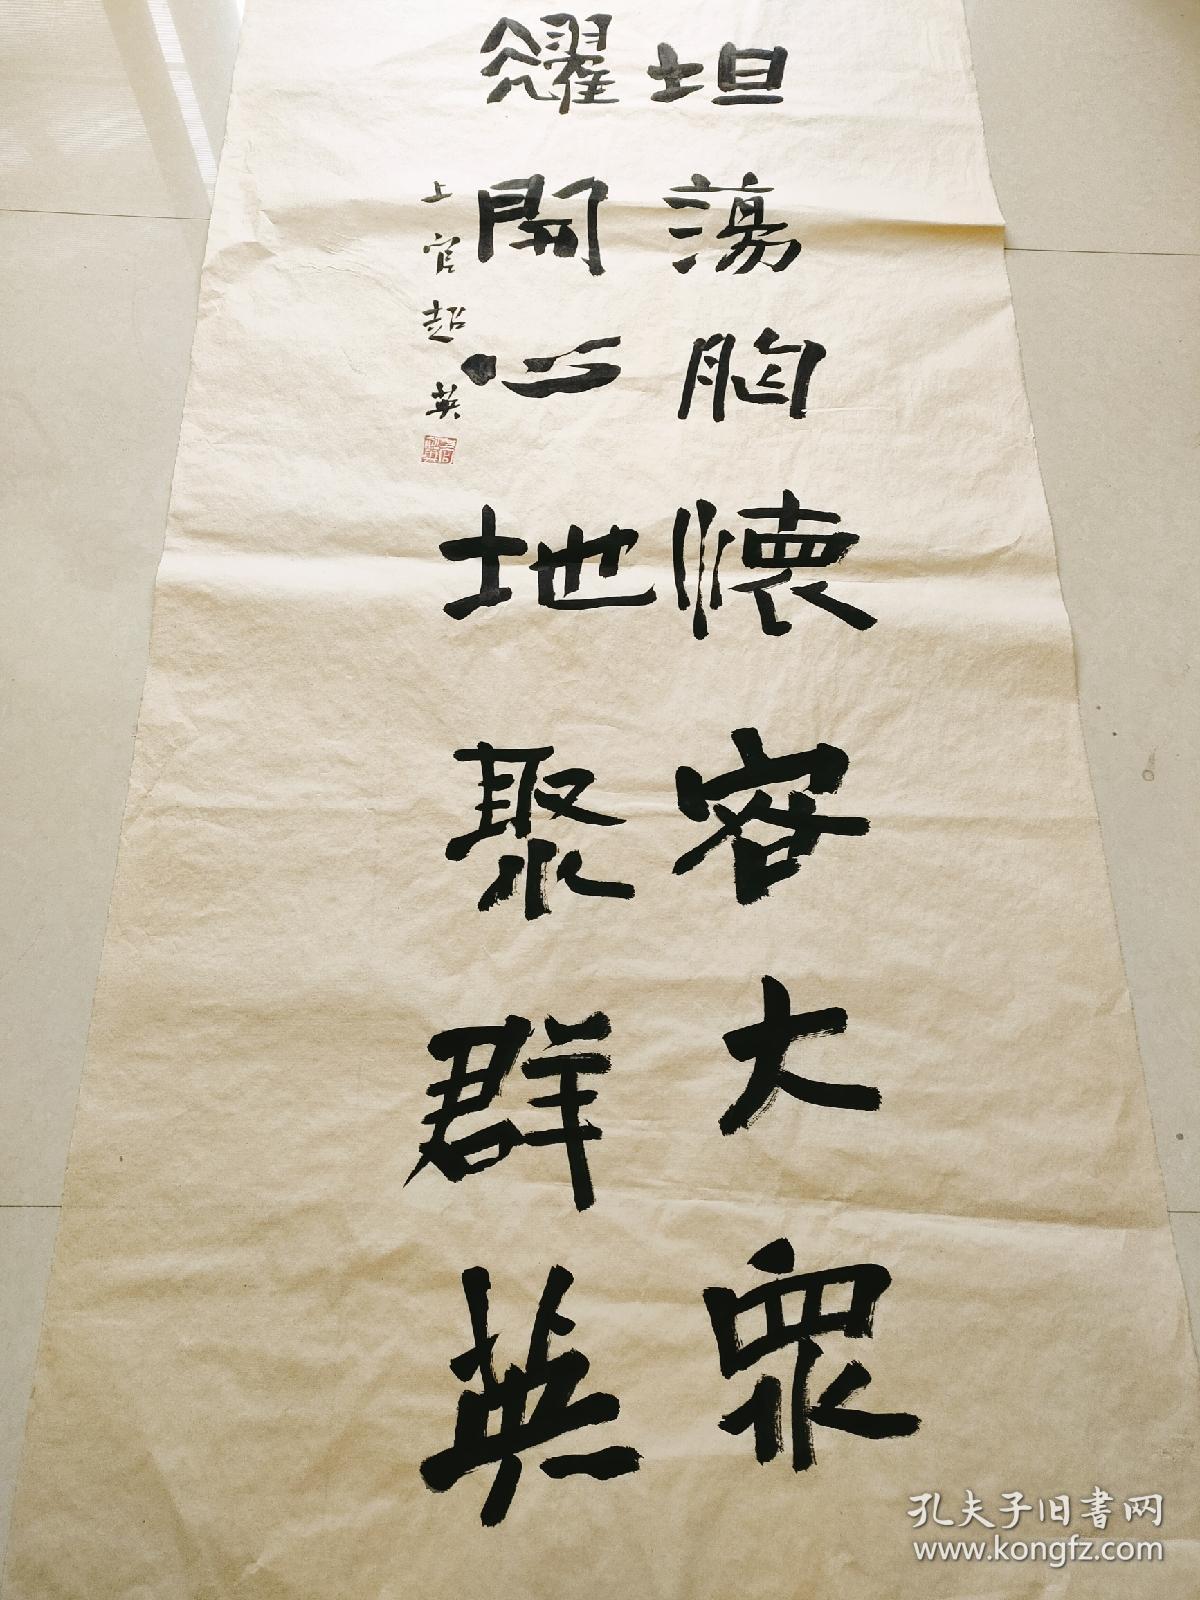 坦蕩胸懷容大衆
耀開心地聚群英
上官超英
孔夫子旧書网
www.kongfz.com